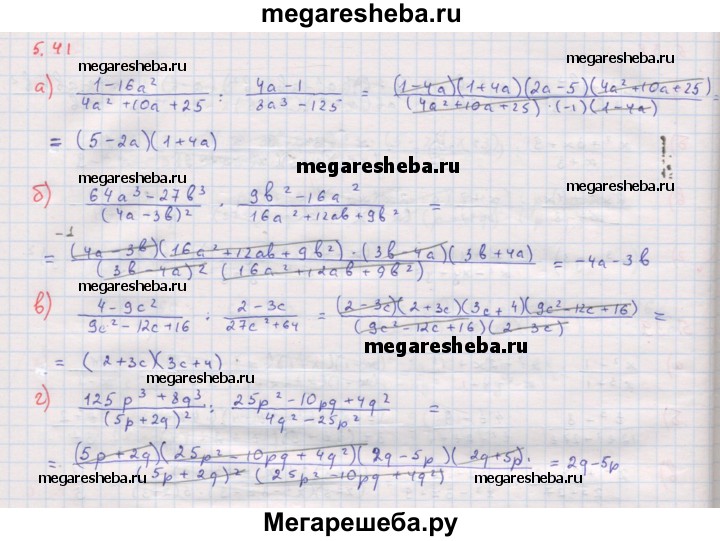 megaresheba.ru
5.41
megaresheba.ru megaresheba.ru
а) (1-16a²)/(4a²+10a+25) : (4a-1)/(8a³-125) = ((1-4a)(1+4a)(2a-5)(4a²+10a+25))/((4a²+10a+25)·(-1)(1-4a)) =
= (5-2a)(1+4a)
megaresheba.ru
megaresheba.ru megaresheba.ru
б) (64a³-27b³)/(4a-3b)² · (9b²-16a²)/(16a²+12ab+9b²) =
-1
= ((4a-3b)(16a²+12ab+9b²)·(3b-4a)(3b+4a))/((3b-4a)²(16a²+12ab+9b²)) = -4a-3b
в) (4-9c²)/(9c²-12c+16) : (2-3c)/(27c²+64) = ((2-3c)(2+3c)(3c+4)(9c²-12c+16))/((9c²-12c+16)(2-3c)) =
megaresheba.ru
= (2+3c)(3c+4)
megaresheba.ru
г) (125p³+8q³)/(5p+2q)² : (25p²-10pq+4q²)/(4q²-25p²) =
= ((5p+2q)(25p²-10pq+4q²)(2q-5p)(2q+5p))/((5p+2q)²(25p²-10pq+4q²)) = 2q-5p
megaresheba.ru megaresheba.ru
Мегарешеба.ру